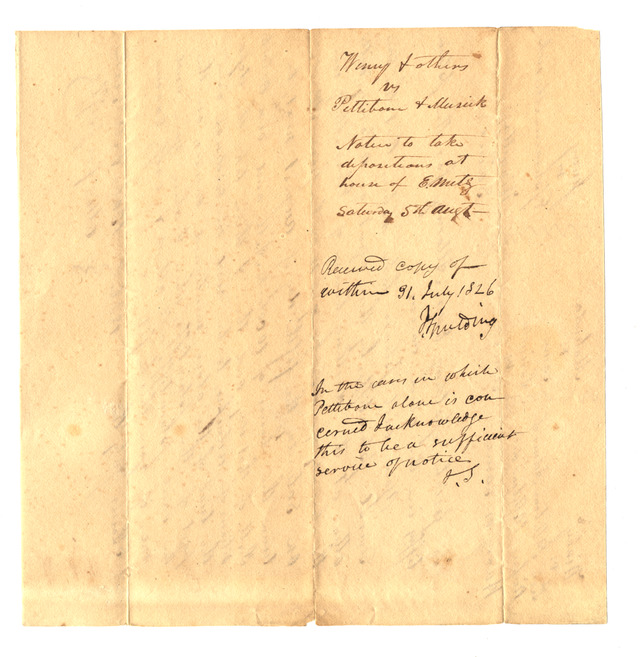 Winny & others
vs
Pettibone & Musick
Notice to take
depositions at
house of E. Metz
Saturday 5th Augt
Received copy of
within 31. July 1826
J Spalding
In the cases in which
Pettibone alone is con
cerned I acknowledge
this to be a sufficient
service of notice
J. S.